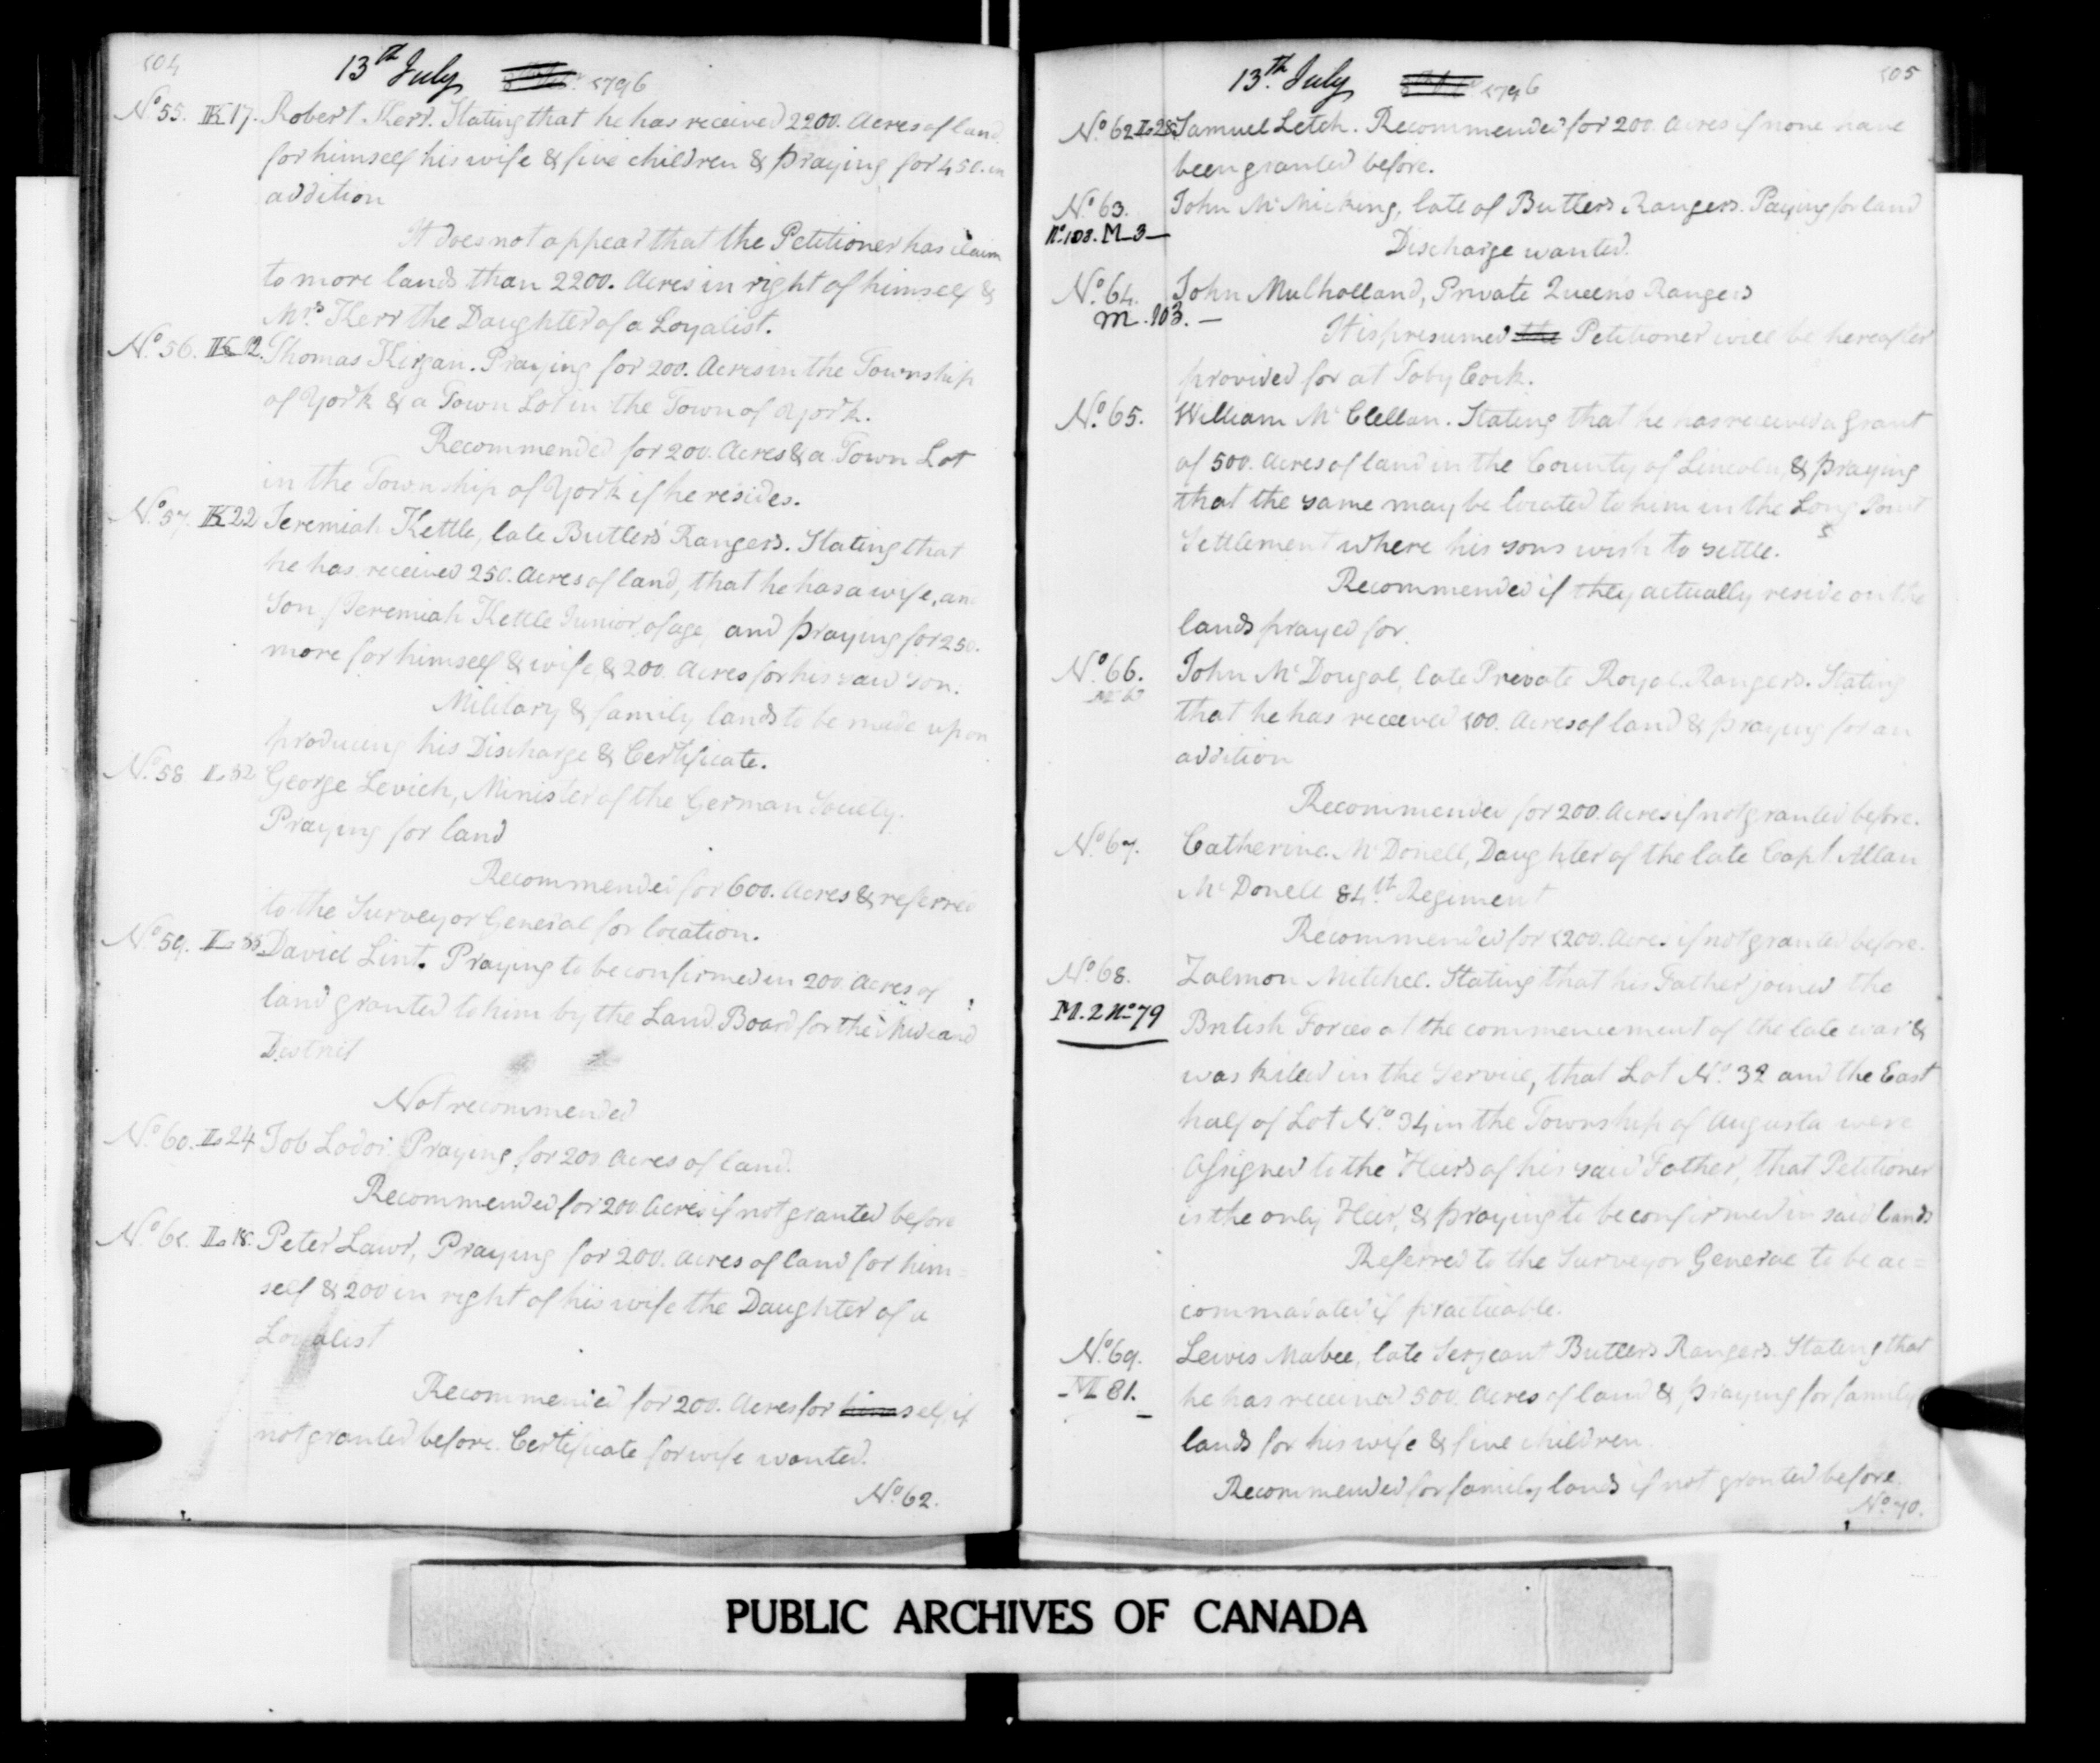 104
13th July 1796
No. 55. K 17. Robert Kerr. Stating that he has received 2200. Acres of land
for himself his wife & five children & praying for 450. in
addition
It does not appear that the Petitioner has claim
to more lands than 2200. Acres in right of himself &
Mrs. Kerr the Daughter of a Loyalist.
No. 56. K 12. Thomas Kirgan. Praying for 200. Acres in the Township
of York & a Town Lot in the Town of York.
Recommended for 200. Acres & a Town Lot
in the Township of York if he resides.
No. 57. K 22 Jeremiah Kettle, late Butlers Rangers. Stating that
he has received 250. Acres of land, that he has a wife, an
Son / Jeremiah Kettle Junior, of age / and praying for 250.
more for himself & wife, & 200 Acres for his said son.
Military & family lands to be made upon
producing his Discharge & Certificate.
No. 58. L 32 George Levich, Minister of the German Society.
Praying for land
Recommended for 600. Acres & referred
to the Surveyor General for location.
No. 59. L David Lint. Praying to be confirmed in 200. Acres of
land granted to him by the Land Board for the Midland
District
Not recommended
No. 60. L 24 Job Lodor Praying for 200 Acres of land.
Recommended for 200. Acres if not granted before
No. 61. L 18. Peter Lawr, Praying for 200. Acres of land for him=
self & 200 in right of his wife the Daughter of a
Loyalist
Recommended for 200. Acres for himself if
not granted before. Certificate for wife wanted.
No. 62.
105
13th. July 1796
No. 62 L 28 Samuel Letch. Recommended for 200. Acres if none have
been granted before.
No. 63. John McMicking, late of Butlers Rangers. Paying for land
No. 103. M-3-
Discharge wanted.
No. 64. John Mulholland, Private Queens Rangers
M. 103. -
It is presumed the Petitioner will be hereafter
provided for at Toby Cock.
No. 65. William McClellan. Stating that he has received a grant
of 500. Acres of land in the County of Lincoln, & praying
that the same may be located to him in the Long Point
Settlement where his sons wish to settle.
Recommended if they actually reside on the
lands prayed for.
No. 66. John McDougal, late Private Royal Rangers. Stating
that he has received 100. Acres of land & praying for an
addition
Recommended for 200. Acres if not granted before.
No. 67. Catherine McDonell, Daughter of the late Capt. Allan
McDonell 84th. Regiment
Recommended for 1200. Acres if not granted before.
No. 68. Zalmon Mitchel. Stating that his Father joined the
M. 2 No. 79
British Forces at the commencement of the late war &
was killed in the Service, that Lot No. 32 and the East
half of Lot No. 34 in the Township of Augusta were
Assigned to the Heirs of his said Father, that Petitioner
is the only Heir, & praying to be confirmed in said lands
Referred to the Surveyor General to be ac=
commodated if practicable.
No. 69. Lewis Mabee, late Serjeant Butlers Rangers. Stating that
M 81. he has received 500. Acres of land & praying for family
lands for his wife & five children.
Recommended for family lands if not granted before.
No. 70.
PUBLIC ARCHIVES OF CANADA